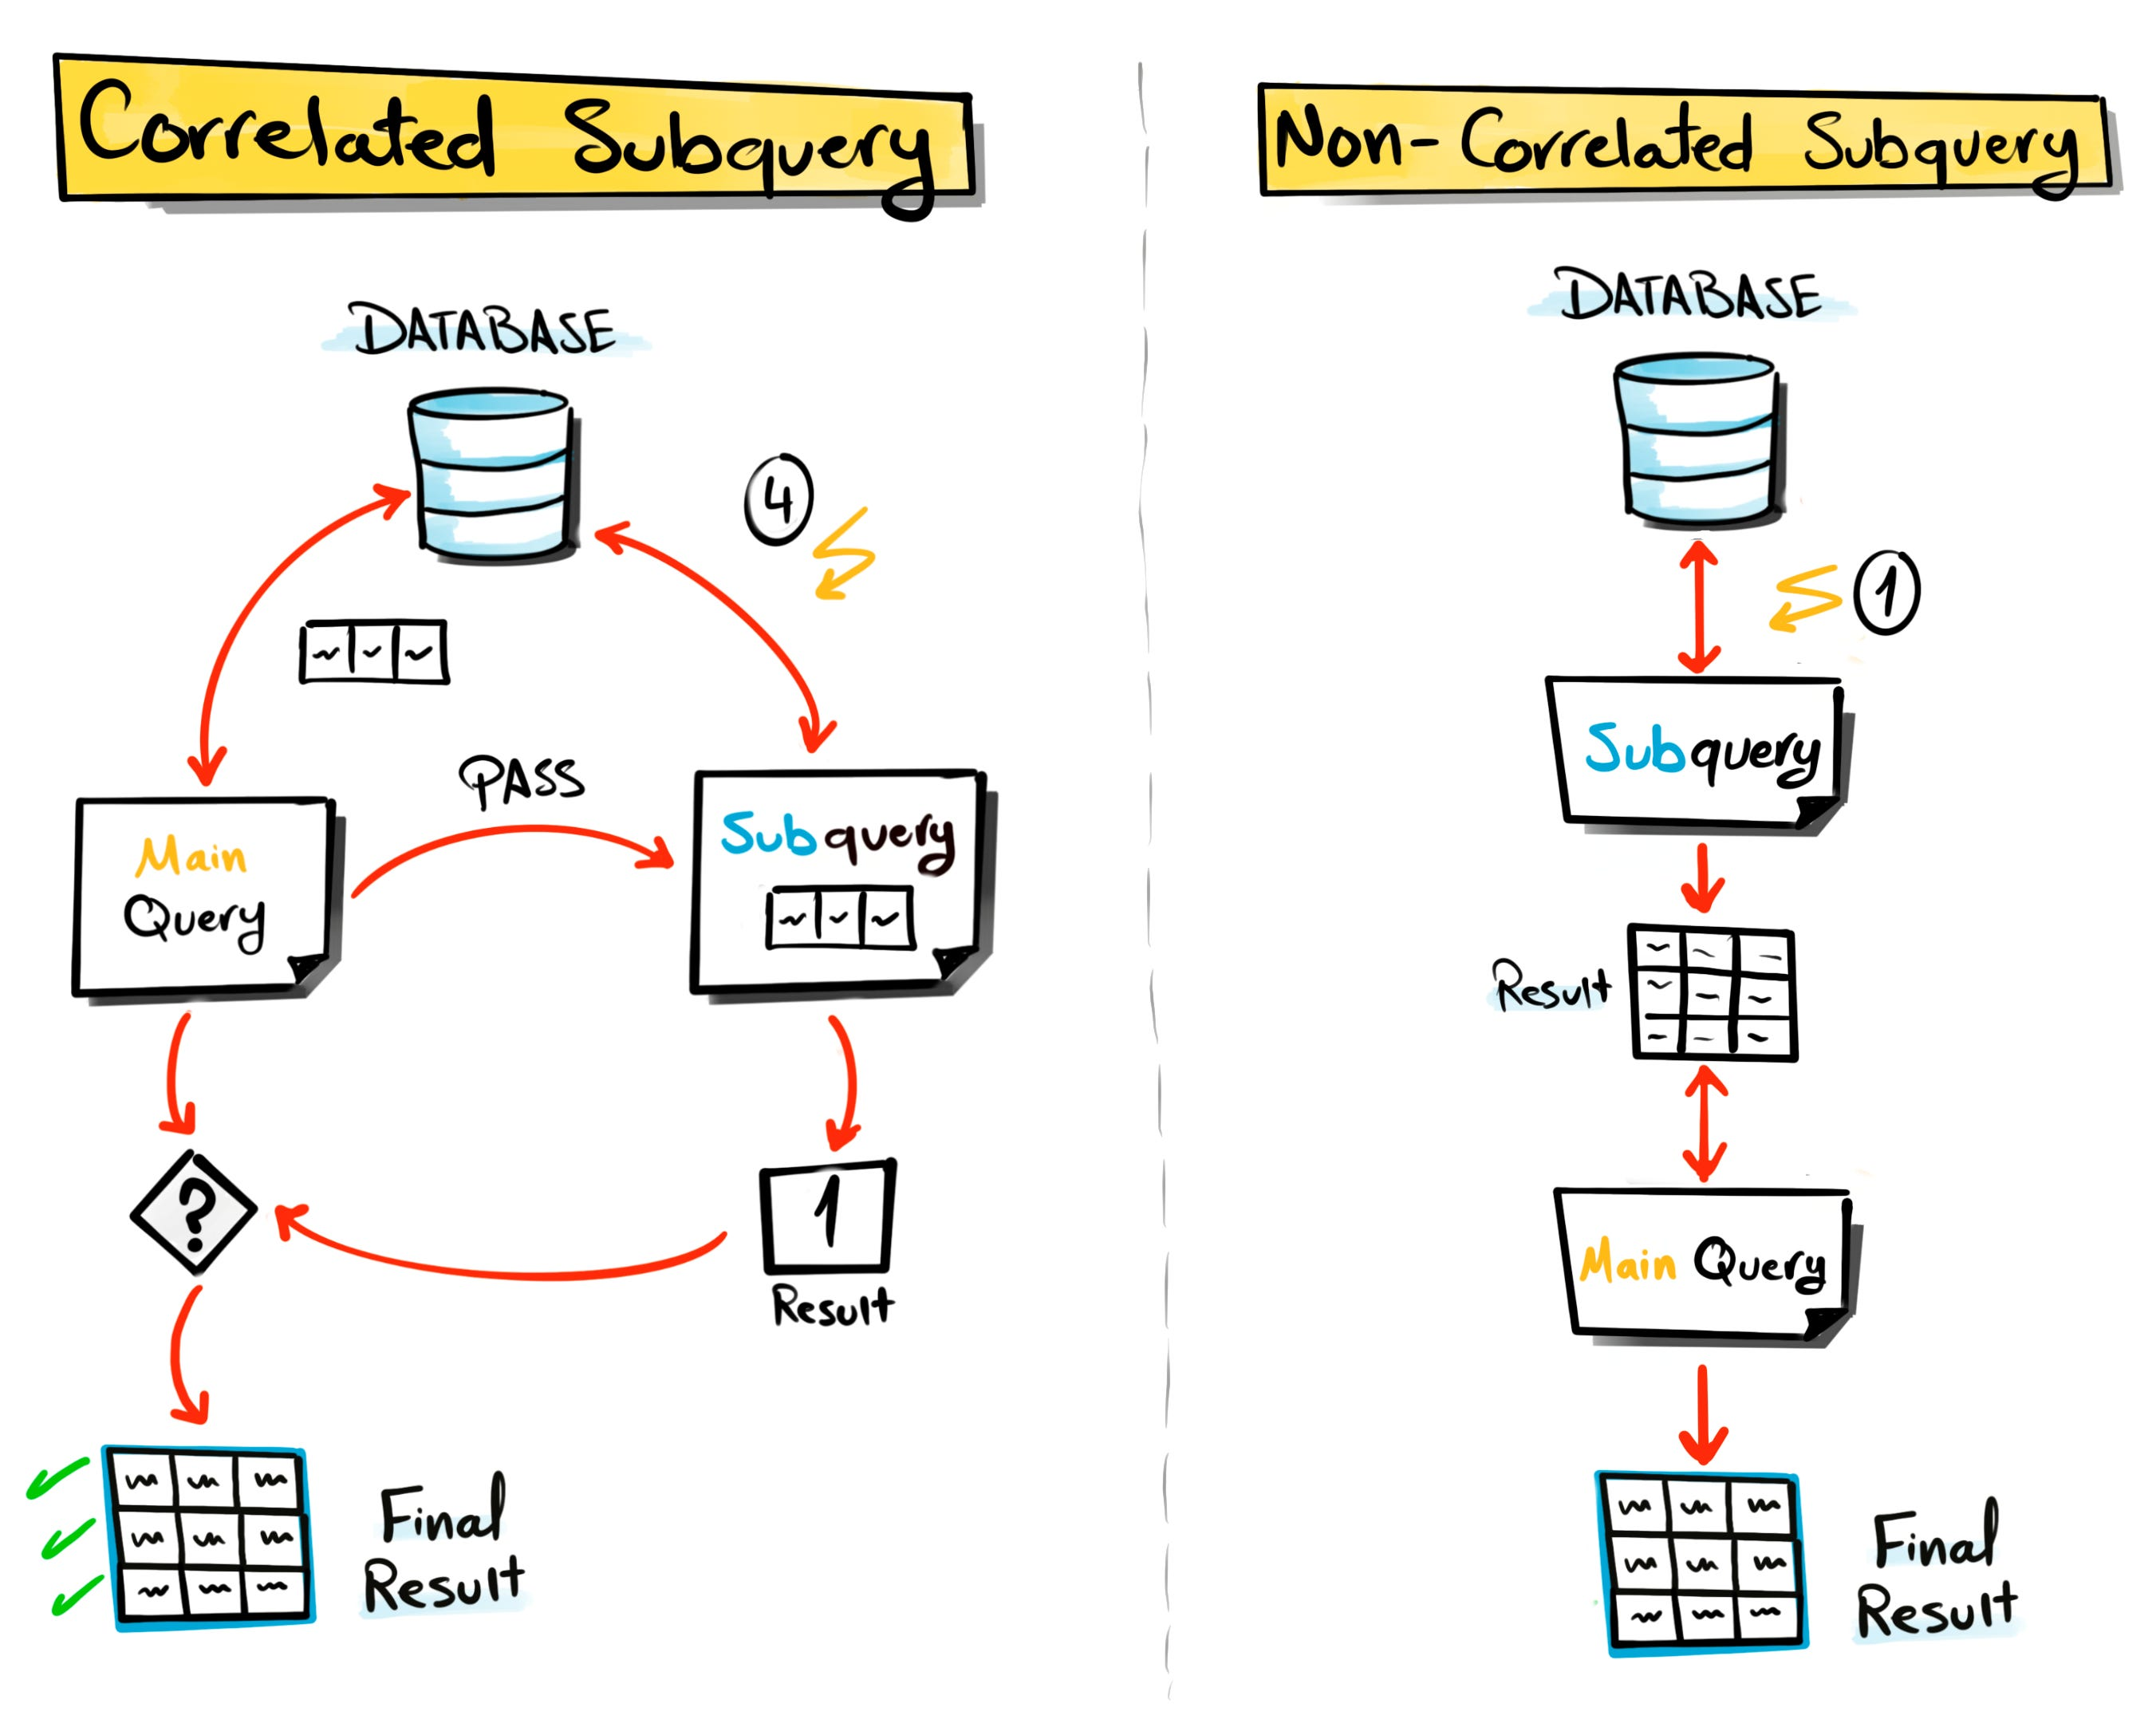 Correlated Subquery
DATABASE
4
PASS
Main
Query
Subquery
?
1
Result
Final
Result
Non-Correlated Subquery
DATABASE
1
Subquery
Result
Main Query
Final
Result